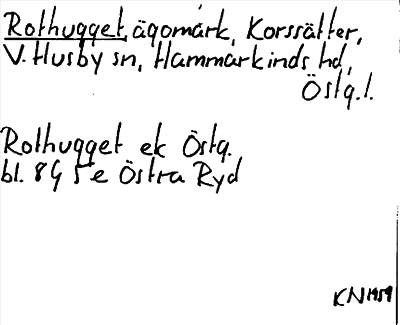 Rothugget, ägomark, Korssätter,
V. Husby sn, Hammarkinds hd,
Östg. l.
Rothugget ek Östg.
bl. 8G 5e Östra Ryd
KN 1959